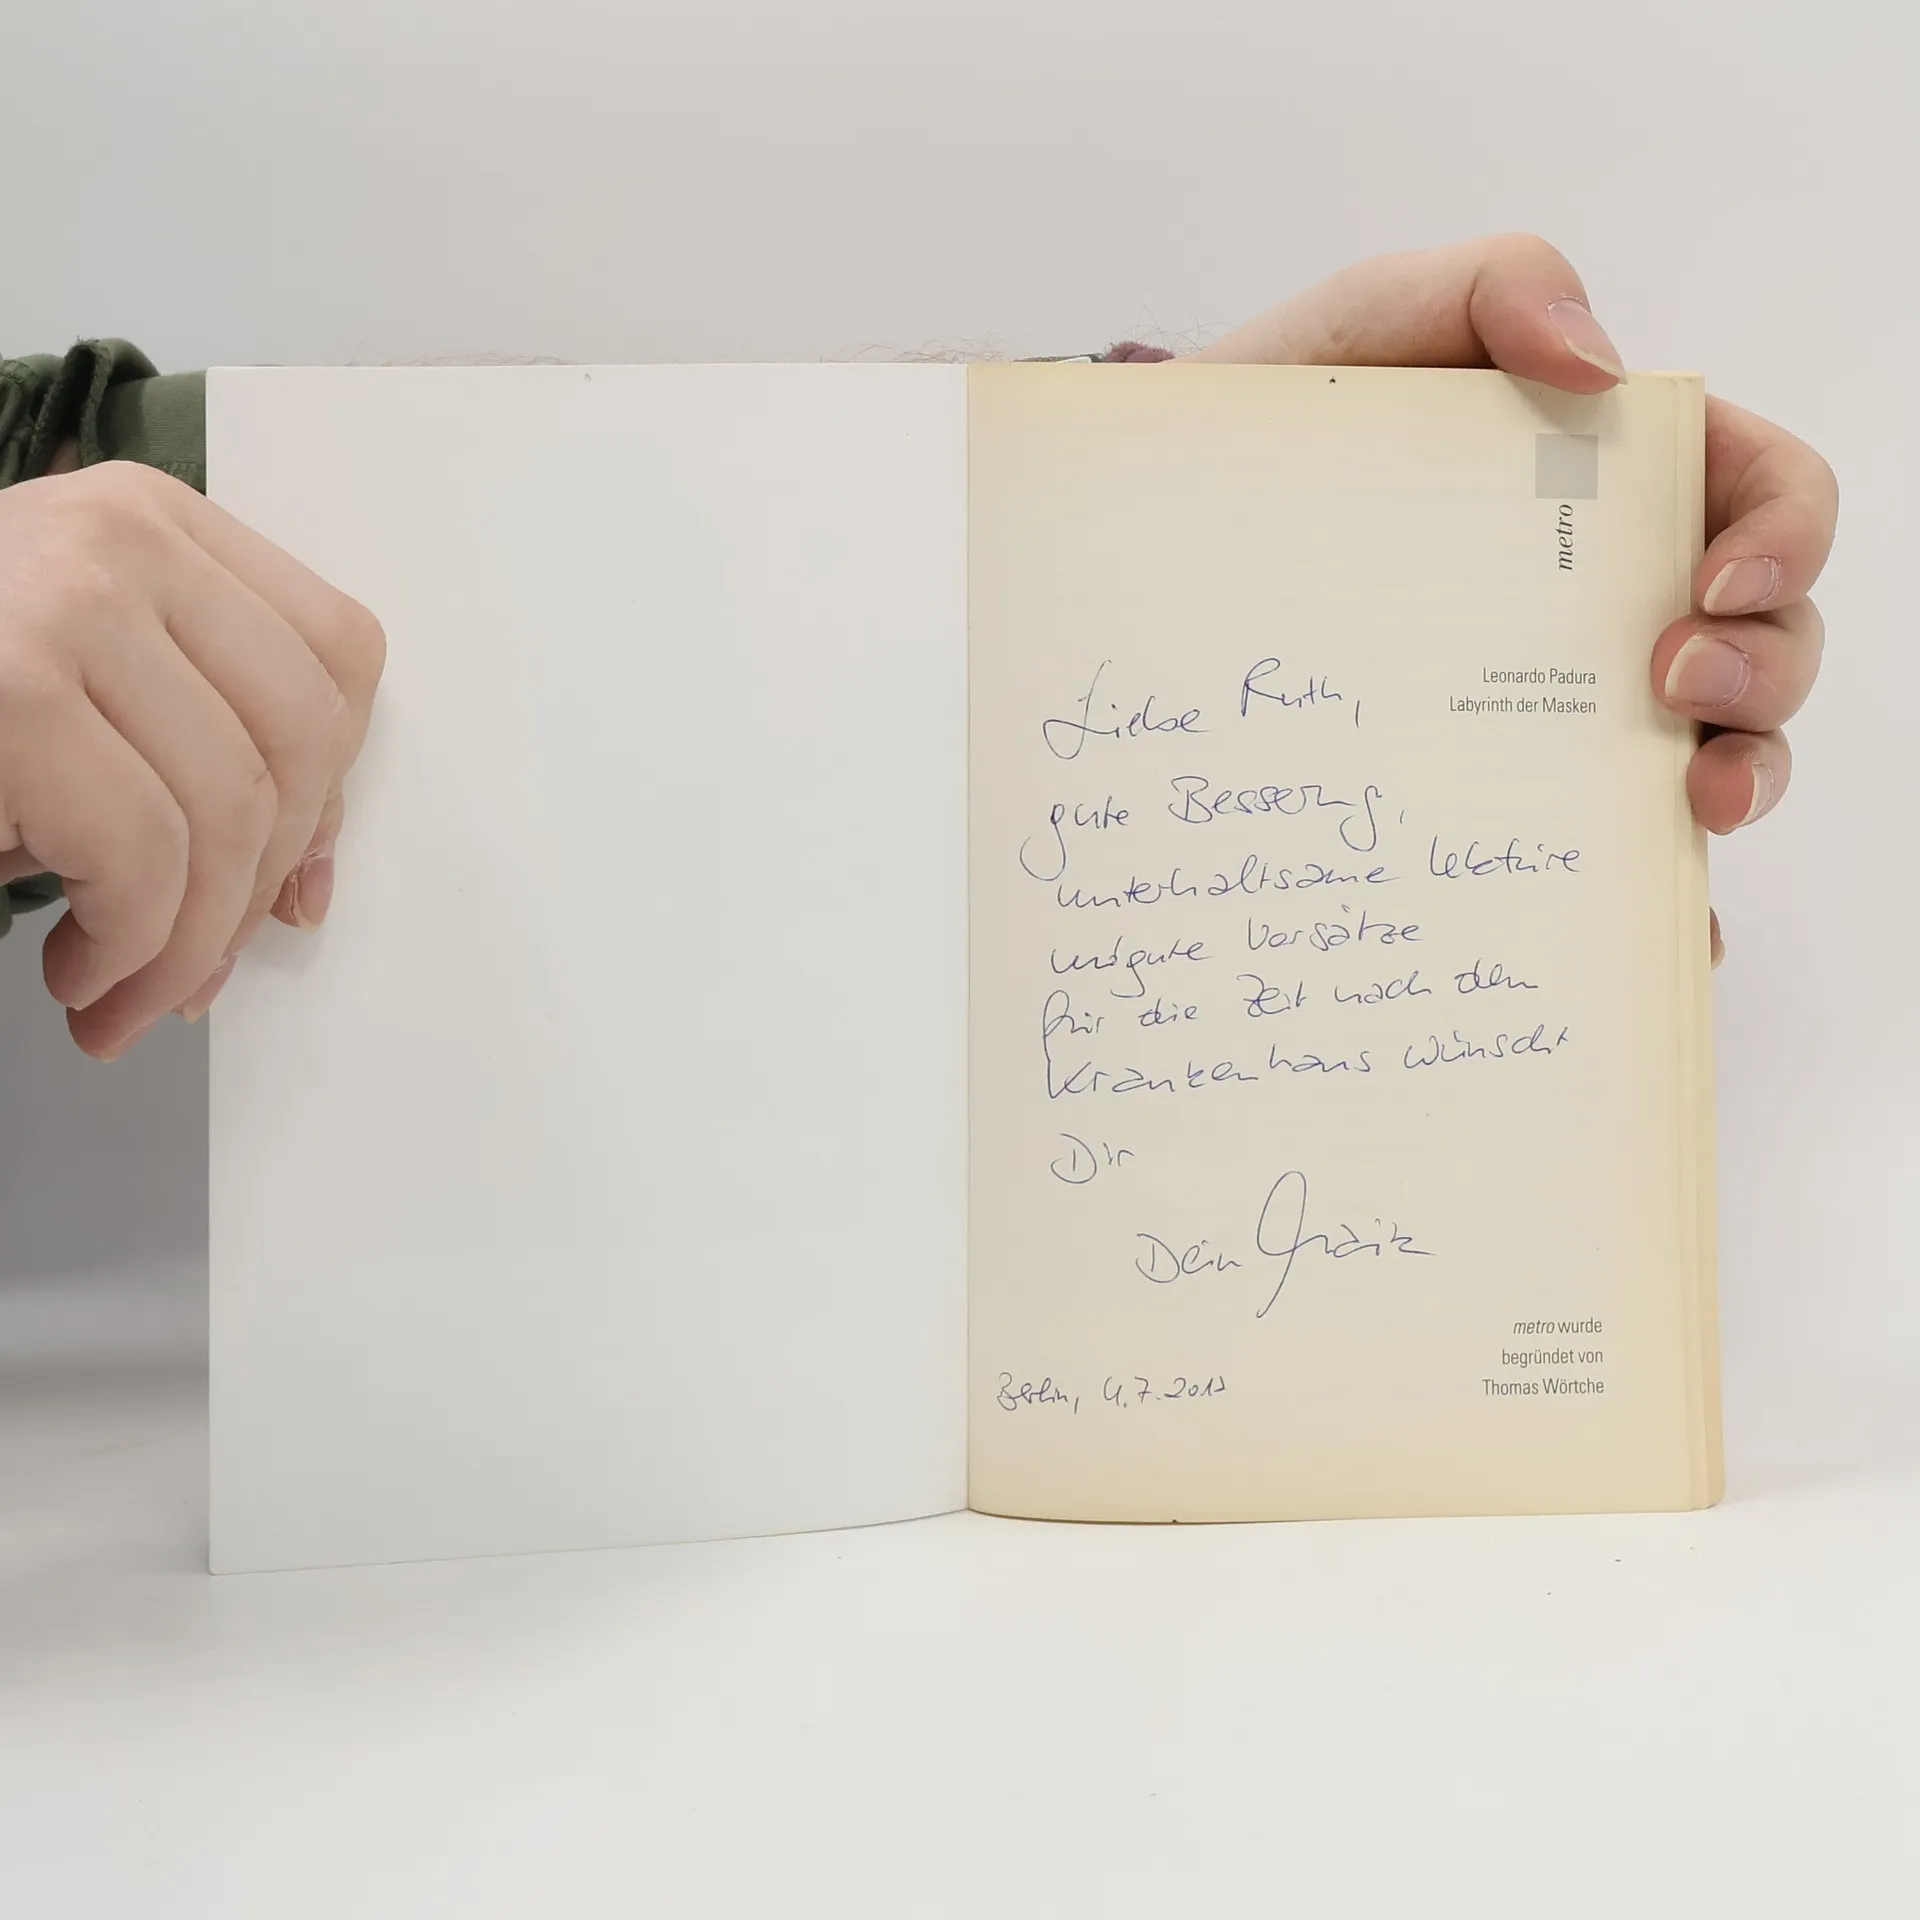 metro
Leonardo Padura
Labyrinth der Masken
Liebe Ruth,
gute Besserung,
unterhaltsame Lektüre
und gute Vorsätze
für die Zeit nach dem
Krankenhaus wünscht
Dir
Dein
metro wurde
begründet von
Thomas Wörtche
Berlin, 4.7.